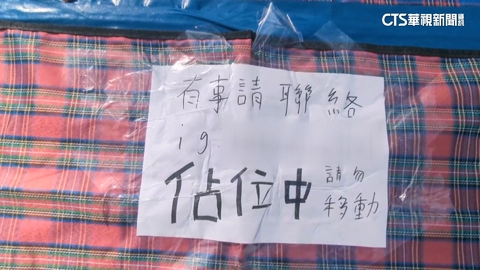 CTS華視新聞
有事請聯絡
ig
佔位中
請勿
移動